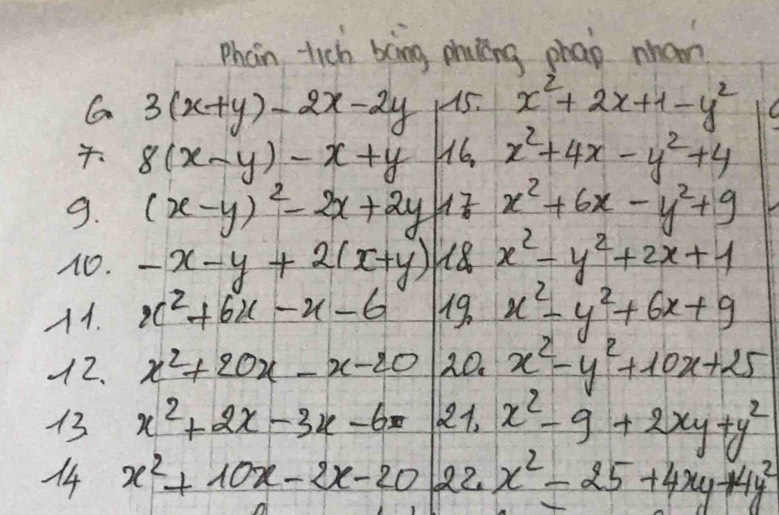 Phân tích bằng phương pháp nhóm
6. 3(x+y) - 2x - 2y
7. 8(x-y) - x + y
9. (x-y)² - 2x + 2y
10. -x - y + 2(x+y)
11. x² + 6x - x - 6
12. x² + 20x - x - 20
13 x² + 2x - 3x - 6
14 x² + 10x - 2x - 20
15. x² + 2x + 1 - y²
16. x² + 4x - y² + 4
17 x² + 6x - y² + 9
18. x² - y² + 2x + 1
19. x² - y² + 6x + 9
20. x² - y² + 10x + 25
21. x² - 9 + 2xy + y²
22. x² - 25 + 4xy + 4y²